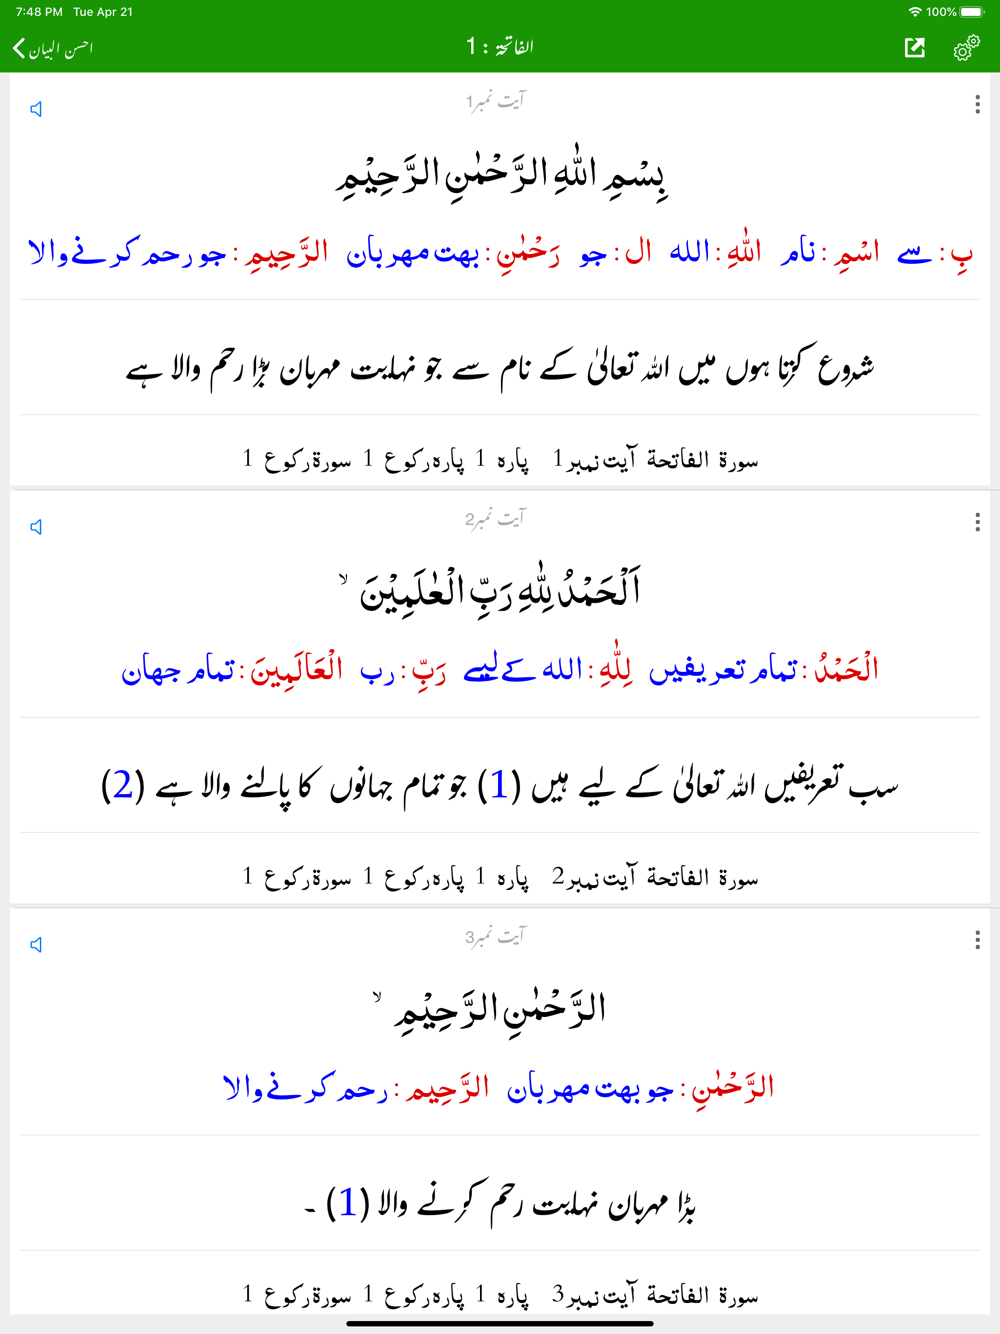 7:48 PM Tue Apr 21 100%
احسن البیان
الفاتحۃ : 1
آیت نمبر1
بِسْمِ اللّٰهِ الرَّحْمٰنِ الرَّحِیْمِ
بِ: سے اسْمِ: نام اللّٰهِ: الله ال: جو رَحْمٰنِ: بهت مهربان الرَّحِیمِ: جو رحم کرنے والا
شروع کرتا ہوں میں اللہ تعالیٰ کے نام سے جو نہایت مہربان بڑا رحم والا ہے
سورة الفاتحة آیت نمبر 1 پاره 1 پاره رکوع 1 سورة رکوع 1
آیت نمبر2
اَلْحَمْدُ لِلّٰهِ رَبِّ الْعٰلَمِیْنَ ۙ
الْحَمْدُ: تمام تعریفیں لِلّٰهِ: الله کے لیے رَبِّ: رب الْعَالَمِینَ: تمام جهان
سب تعریفیں اللہ تعالیٰ کے لیے ہیں (1) جو تمام جہانوں کا پالنے والا ہے (2)
سورة الفاتحة آیت نمبر 2 پاره 1 پاره رکوع 1 سورة رکوع 1
آیت نمبر3
الرَّحْمٰنِ الرَّحِیْمِ ۙ
الرَّحْمٰنِ: جو بهت مهربان الرَّحِیم: رحم کرنے والا
بڑا مہربان نہایت رحم کرنے والا (1) ۔
سورة الفاتحة آیت نمبر 3 پاره 1 پاره رکوع 1 سورة رکوع 1